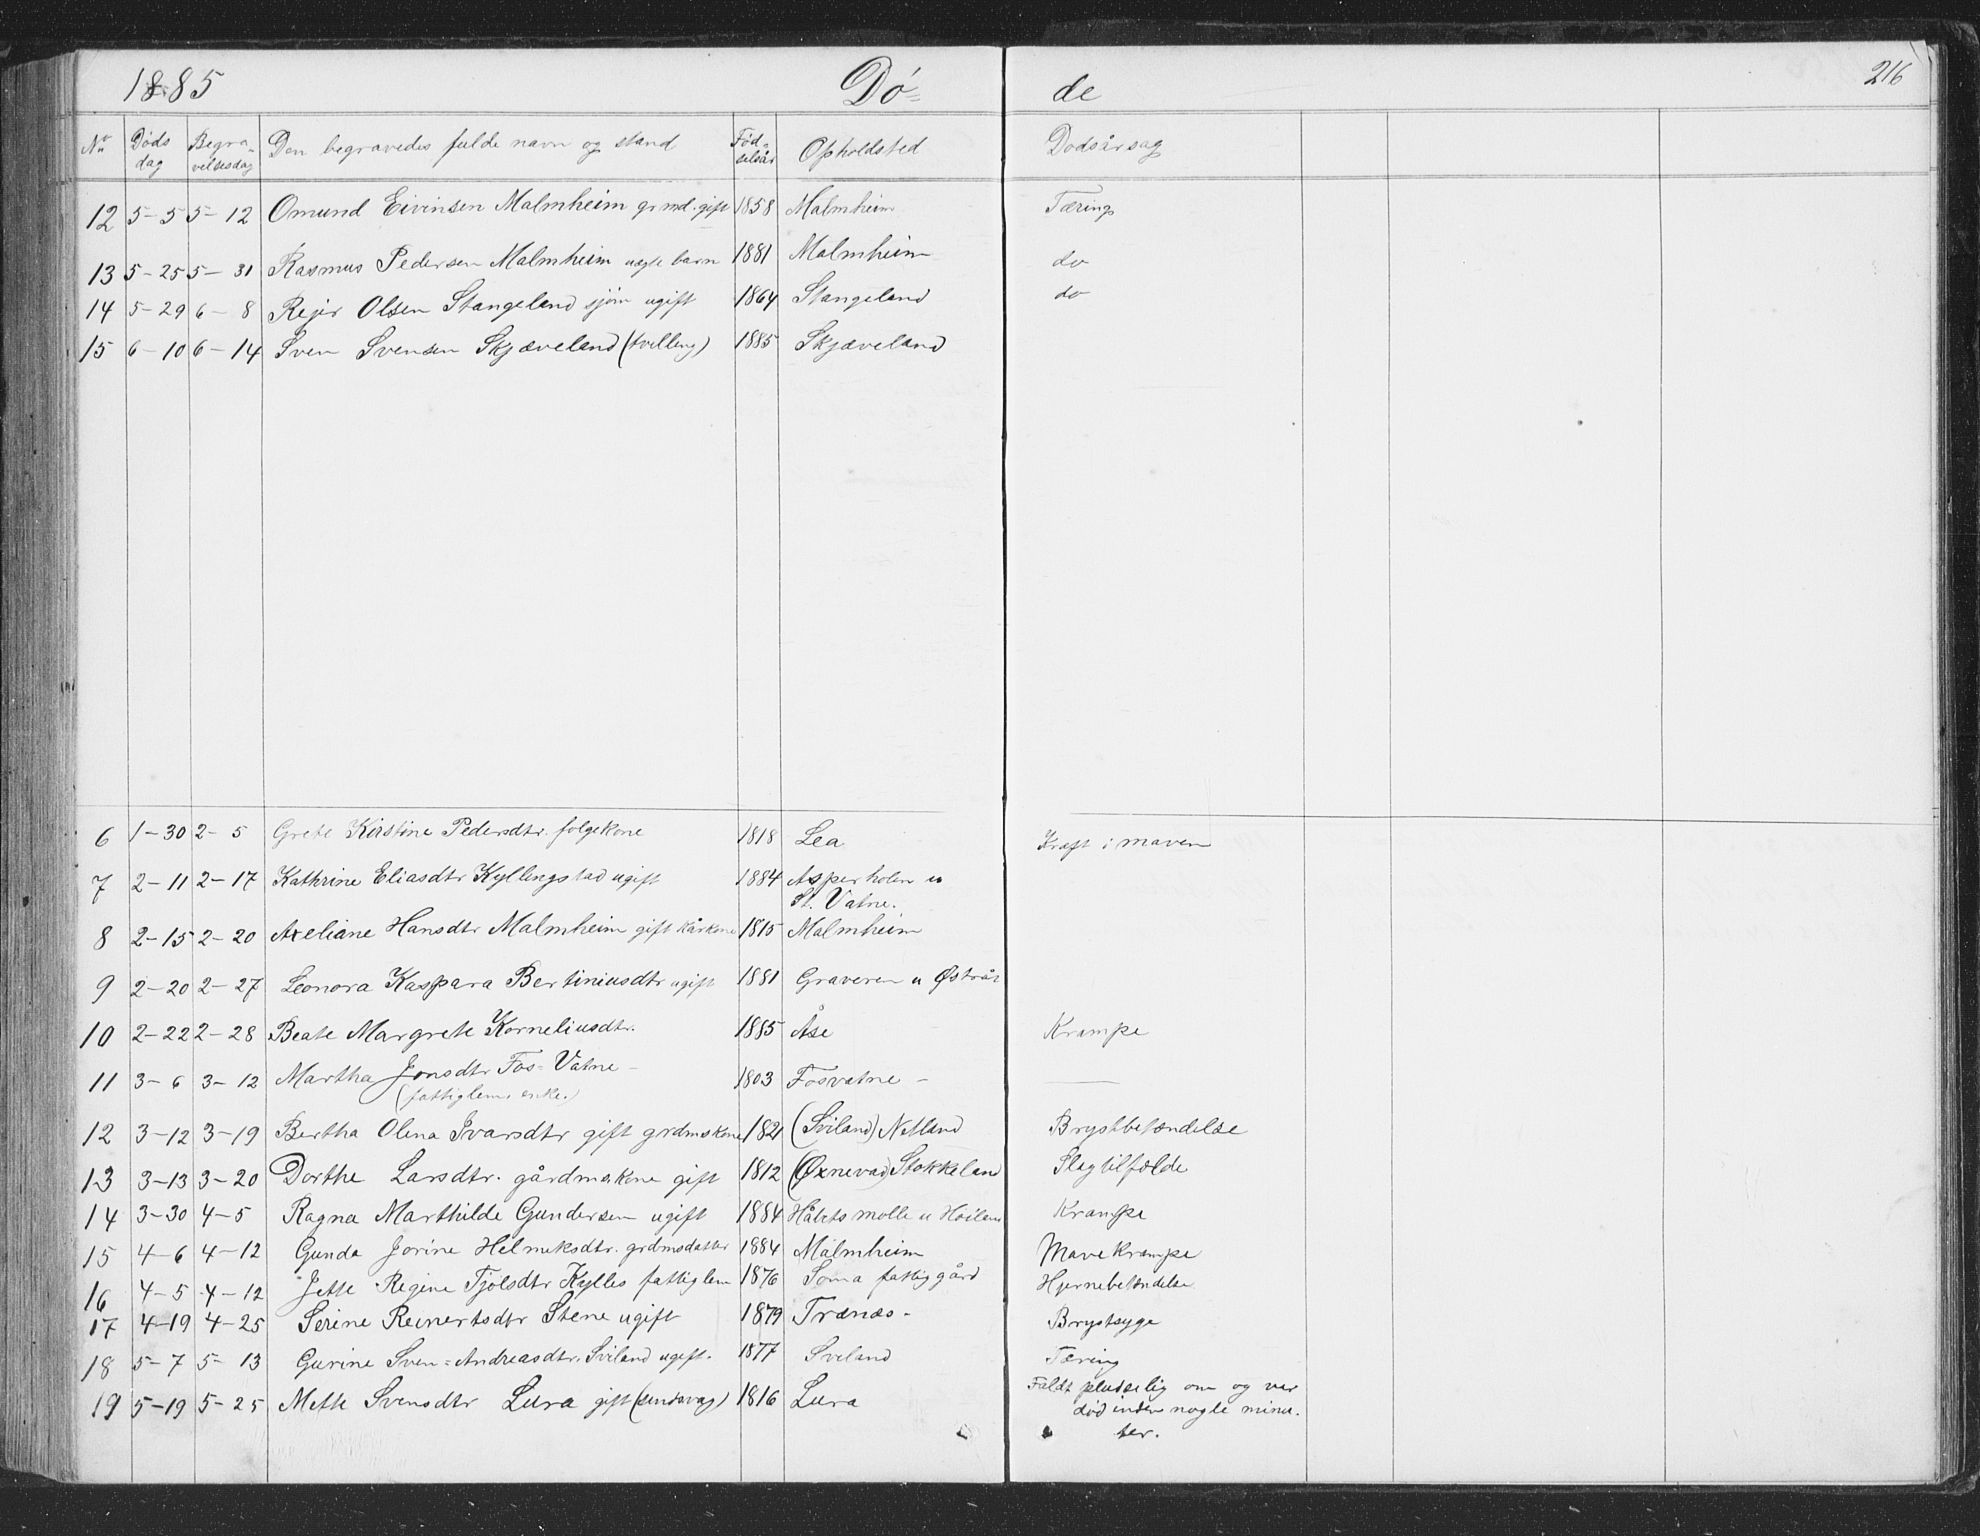 1885 Dø= de 216
No Døds dag Begra- velsesdag Den begravedes fulde navn og stand Fød- selsår Opholdsted Dødsårsag
12 5-5 5-12 Omund Eivinsen Malmheim grmd. gift 1858 Malmheim Tæring
13 5-25 5-31 Rasmus Pedersen Malmheim uægte barn 1881 Malmheim do
14 5-29 6-8 Rejer Olsen Stangeland sjøm ugift 1864 Stangeland do
15 6-10 6-14 Sven Svensen Skjæveland (tvilling) 1885 Skjæveland
6 1-30 2-5 Grete Kirstine Pedersdtr. folgekone 1818 Lea Kræft i maven
7 2-11 2-17 Kathrine Eliasdtr Kyllingstad ugift 1884 Asperholen u
St. Vatne.
8 2-15 2-20 Axeliane Hansdtr Malmheim gift kårkone 1815 Malmheim
9 2-20 2-27 Leonora Kaspara Bertiniusdtr ugift 1881 Graveren u Østråt
10 2-22 2-28 Beate Margrete Korneliusdtr. 1885 Åse Krampe
11 3-6 3-12 Martha Jonsdtr Fos=Vatne - 1803 Fosvatne -
(fattiglem, enke.)
12 3-12 3-19 Bertha Olena Ivarsdtr gift grdmskone 1821 (Sviland) Netland Brystbetændelse
13 3-13 3-20 Dorthe Larsdtr. gårdmskone gift 1812 (Øxnevad) Stokkeland Slagtilfælde
14 3-30 4-5 Ragna Marthilde Gundersen ugift 1884 molle u Høiland Krampe
15 4-6 4-12 Gunda Jorine Helmiksdtr. grdmsdatter 1884 Malmheim Mavekrampe
16 4-5 4-12 Jette Regine Tjolsdtr Kylles fattiglem 1876 Soma fattiggård Hjernebetændelse
17 4-19 4-25 Serine Reinertsdtr Stene ugift 1879 Trænæs- Brystsyge
18 5-7 5-13 Gurine Sven=Andreasdtr. Sviland ugift. 1877 Sviland Tæring
19 5-19 5-25 Mette Svensdtr Lura gift (sindsvag) 1816 Lura Faldt pludselig om og var
død inden nogle minu-
ter.